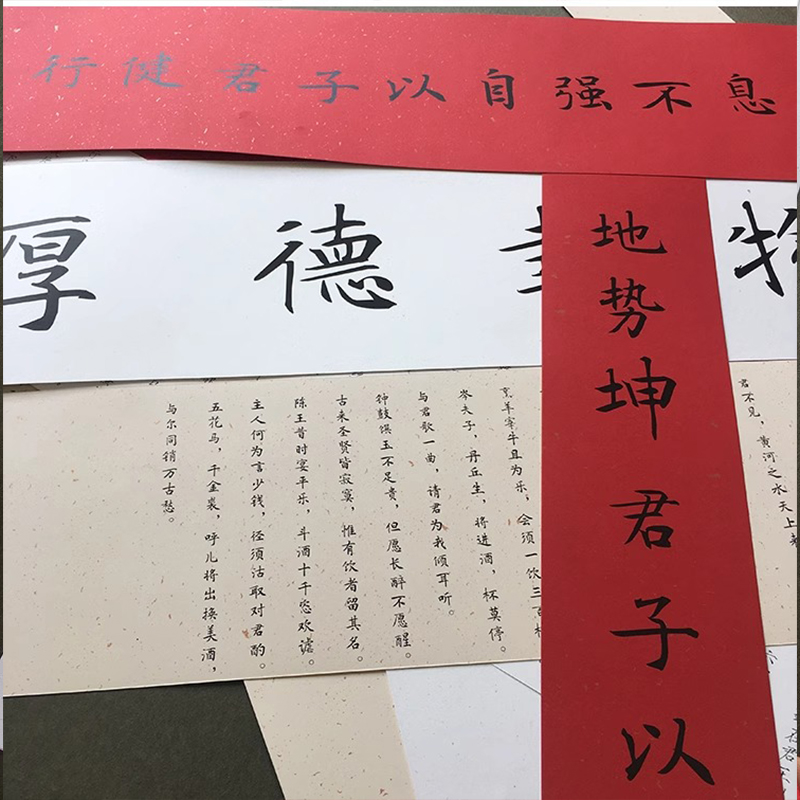 行健君子以自强不息
厚德
物
地势坤君子以
君不见，黄河之水天上来
烹羊宰牛且为乐，会须一饮三百杯
岑夫子，丹丘生，将进酒，杯莫停。
与君歌一曲，请君为我倾耳听。
钟鼓馔玉不足贵，但愿长醉不愿醒。
古来圣贤皆寂寞，惟有饮者留其名。
陈王昔时宴平乐，斗酒十千恣欢谑。
主人何为言少钱，径须沽取对君酌。
五花马，千金裘，呼儿将出换美酒，
与尔同销万古愁。